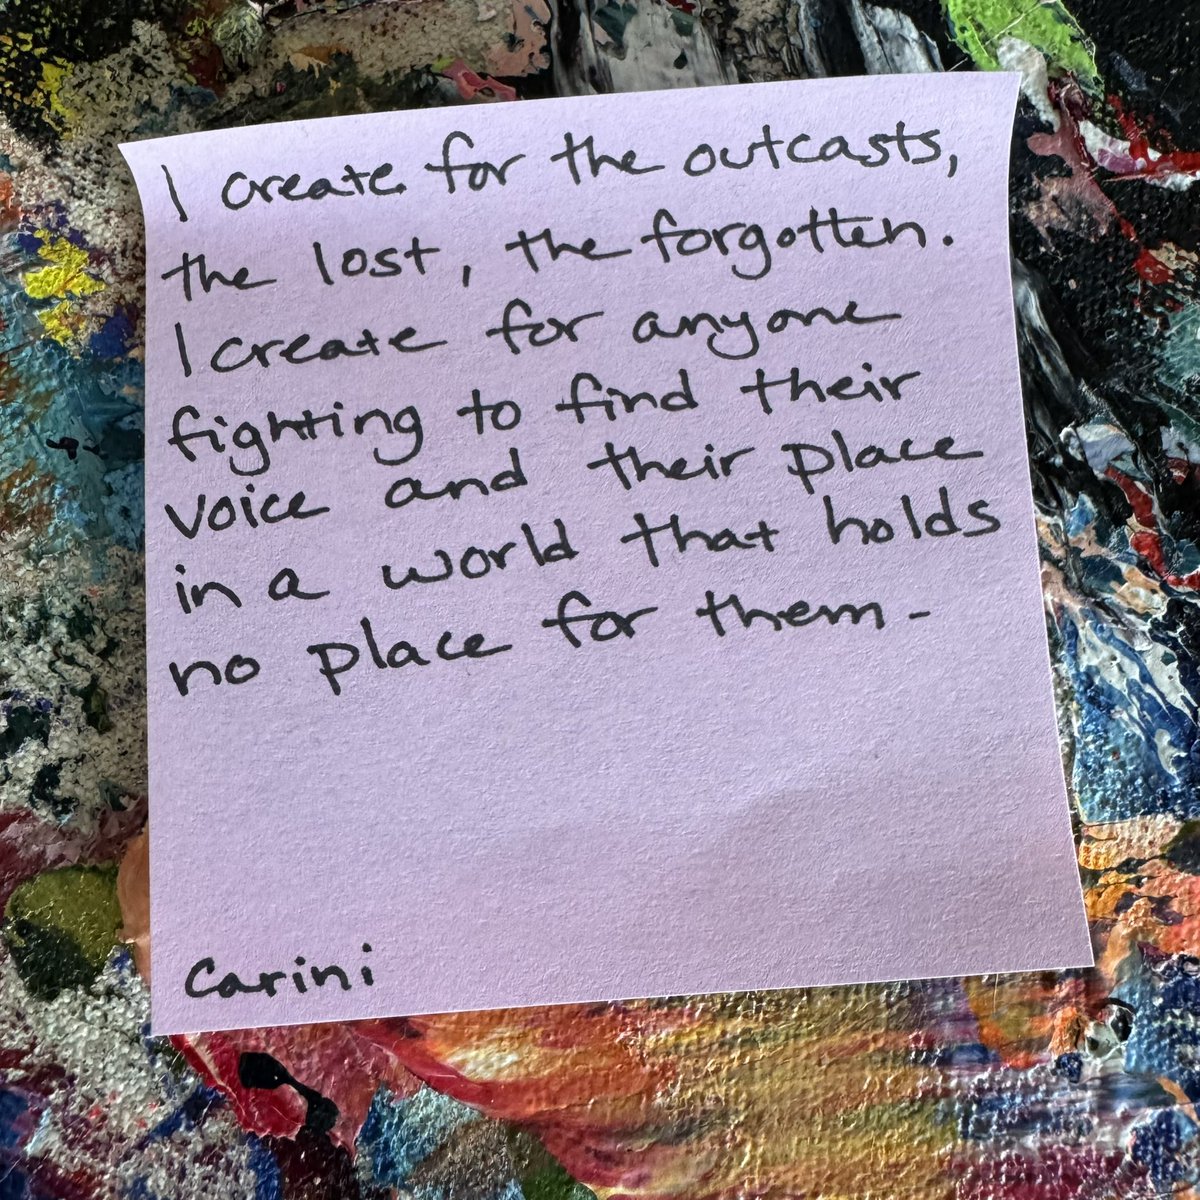 I create for the outcasts,
the lost, the forgotten.
I create for anyone
fighting to find their
voice and their place
in a world that holds
no place for them -
Carini